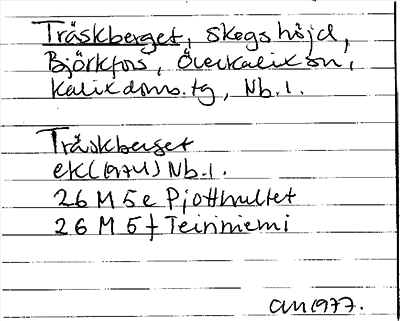 Träskberget, skogshöjd,
Björkfors, Överkalix sn,
Kalix doms.tg, Nb.l.
Träskberget
ekl (1974) Nb.l.
26 M 5 e Pjotthultet
26 M 5 f Teiriniemi
AM 1977.